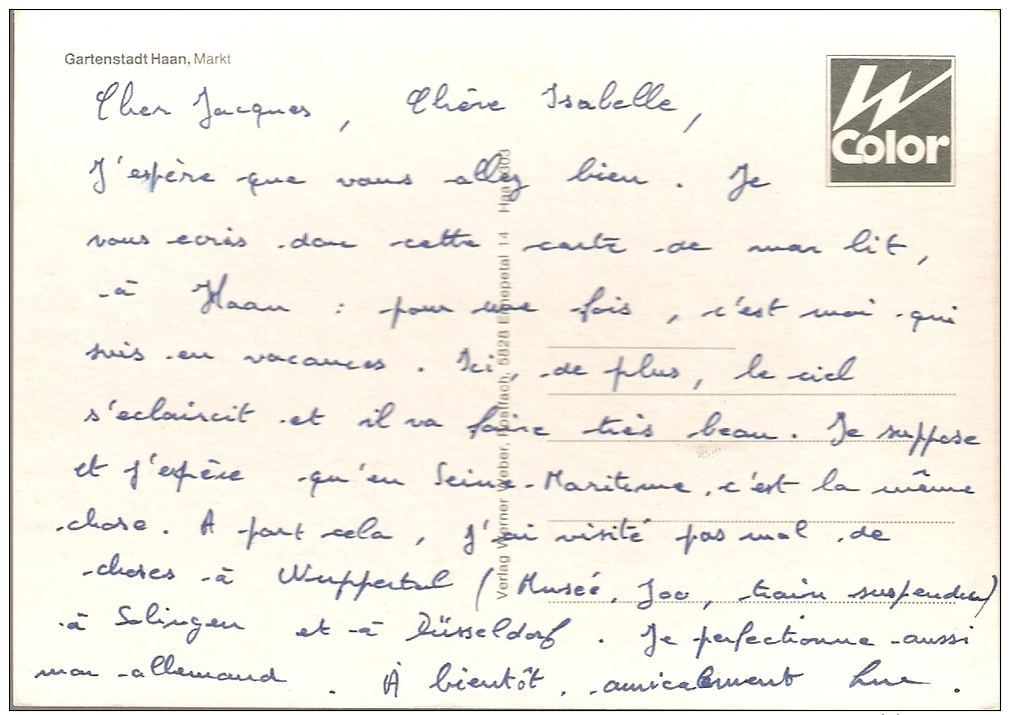 Gartenstadt Haan, Markt
W
Color
Cher Jacques, Chère Isabelle,
J'espère que vous allez bien. Je
vous ecris donc cette carte de mon lit,
à Haan : pour une fois, c'est moi qui
suis en vacances. Ici, de plus, le ciel
s'eclaircit et il va faire très beau. Je suppose
et j'espère qu'en Seine-Maritime, c'est la même
chose. A part cela, j'ai visité pas mal de
choses à Wuppertal (Musée, Zoo, train suspendu)
à Solingen et à Düsseldorf. Je perfectionne aussi
mon allemand. À bientôt, amicalement
Verlag Werner Weber, Postfach, 5828 Ennepetal 14 Haa